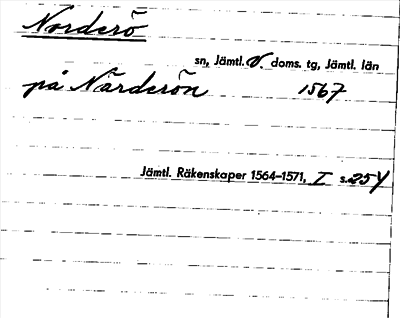 Norderö
sn, Jämtl. V. doms. tg, Jämtl. län
på Närderön 1567
Jämtl. Räkenskaper 1564–1571, I s. 254